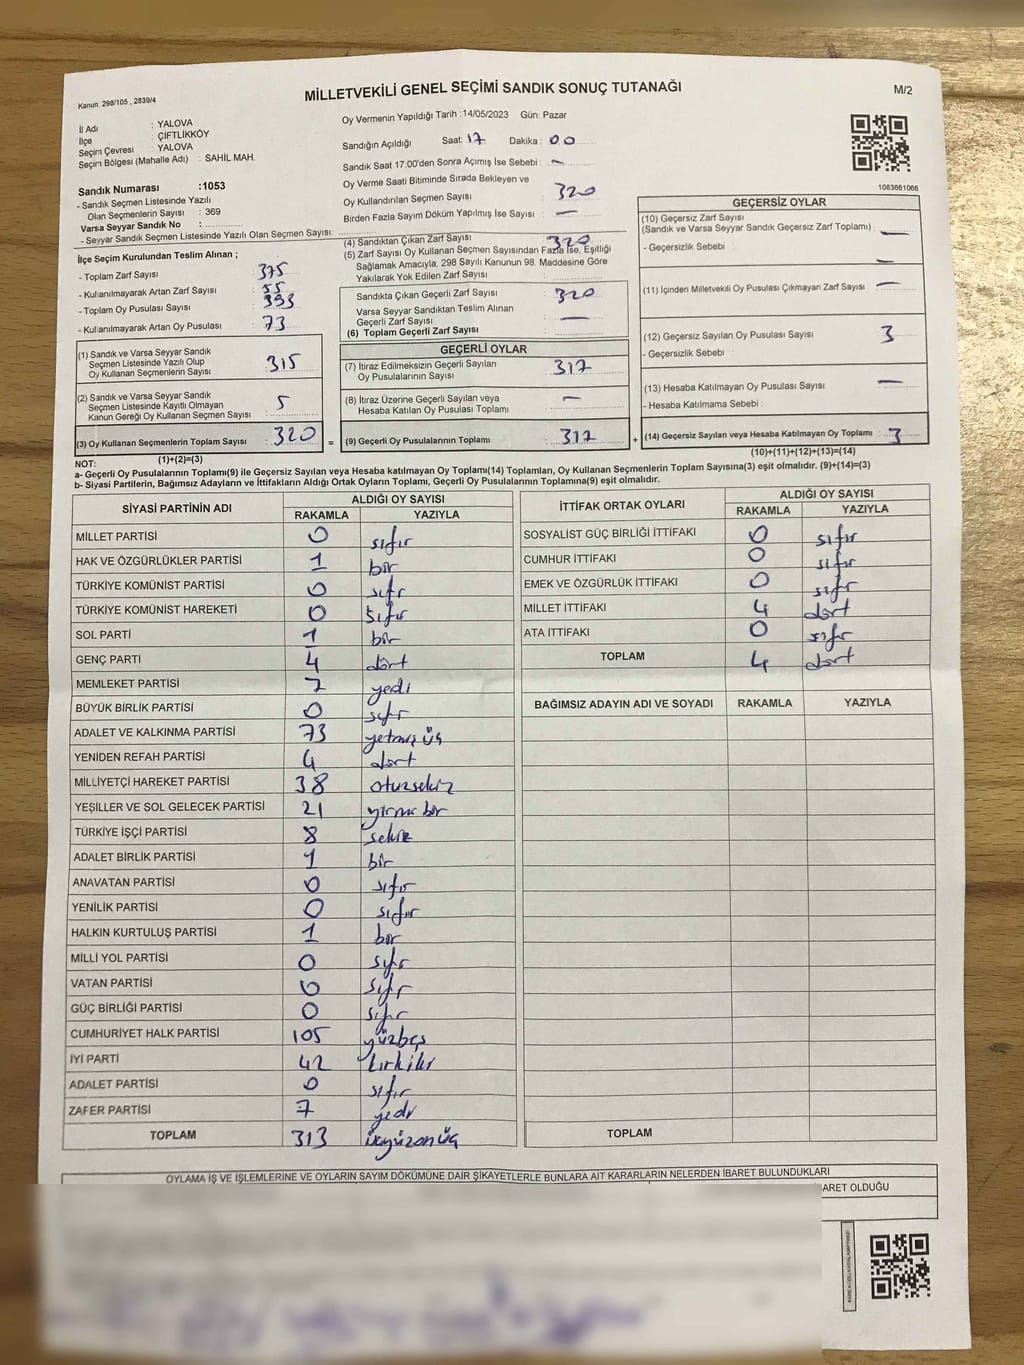 Kanun: 298/105 , 2839/4
MİLLETVEKİLİ GENEL SEÇİMİ SANDIK SONUÇ TUTANAĞI
M/2
İl Adı : YALOVA
İlçe : ÇİFTLİKKÖY
Seçim Çevresi : YALOVA
Seçim Bölgesi (Mahalle Adı) : SAHİL MAH.
Sandık Numarası :1053
- Sandık Seçmen Listesinde Yazılı
Olan Seçmenlerin Sayısı : 369
Varsa Seyyar Sandık No :
- Seyyar Sandık Seçmen Listesinde Yazılı Olan Seçmen Sayısı:
Oy Vermenin Yapıldığı Tarih :14/05/2023 Gün: Pazar
Sandığın Açıldığı Saat: 17 Dakika : 00
Sandık Saat 17:00'den Sonra Açımış İse Sebebi : —
Oy Verme Saati Bitiminde Sırada Bekleyen ve
Oy Kullandırılan Seçmen Sayısı 320
Birden Fazla Sayım Döküm Yapılmış İse Sayısı : —
1083661066
İlçe Seçim Kurulundan Teslim Alınan ;
- Toplam Zarf Sayısı 375
- Kullanılmayarak Artan Zarf Sayısı 55
- Toplam Oy Pusulası Sayısı 393
- Kullanılmayarak Artan Oy Pusulası 73
(1) Sandık ve Varsa Seyyar Sandık
Seçmen Listesinde Yazılı Olup
Oy Kullanan Seçmenlerin Sayısı 315
(2) Sandık ve Varsa Seyyar Sandık
Seçmen Listesinde Kayıtlı Olmayan
Kanun Gereği Oy Kullanan Seçmen Sayısı 5
(3) Oy Kullanan Seçmenlerin Toplam Sayısı 320 =
(1)+(2)=(3)
(4) Sandıktan Çıkan Zarf Sayısı 320
(5) Zarf Sayısı Oy Kullanan Seçmen Sayısından Fazla İse, Eşitliği
Sağlamak Amacıyla, 298 Sayılı Kanunun 98. Maddesine Göre
Yakılarak Yok Edilen Zarf Sayısı
Sandıkta Çıkan Geçerli Zarf Sayısı 320
Varsa Seyyar Sandıktan Teslim Alınan
Geçerli Zarf Sayısı —
(6) Toplam Geçerli Zarf Sayısı
GEÇERLİ OYLAR
(7) İtiraz Edilmeksizin Geçerli Sayılan
Oy Pusulalarının Sayısı 317
(8) İtiraz Üzerine Geçerli Sayılan veya
Hesaba Katılan Oy Pusulası Toplamı —
(9) Geçerli Oy Pusulalarının Toplamı 317 +
GEÇERSİZ OYLAR
(10) Geçersiz Zarf Sayısı
(Sandık ve Varsa Seyyar Sandık Geçersiz Zarf Toplamı) : —
- Geçersizlik Sebebi : —
(11) İçinden Milletvekili Oy Pusulası Çıkmayan Zarf Sayısı —
(12) Geçersiz Sayılan Oy Pusulası Sayısı 3
- Geçersizlik Sebebi :
(13) Hesaba Katılmayan Oy Pusulası Sayısı —
- Hesaba Katılmama Sebebi :
(14) Geçersiz Sayılan veya Hesaba Katılmayan Oy Toplamı 3
(10)+(11)+(12)+(13)=(14)
NOT:
a- Geçerli Oy Pusulalarının Toplamı(9) ile Geçersiz Sayılan veya Hesaba katılmayan Oy Toplamı(14) Toplamları, Oy Kullanan Seçmenlerin Toplam Sayısına(3) eşit olmalıdır. (9)+(14)=(3)
b- Siyasi Partilerin, Bağımsız Adayların ve İttifakların Aldığı Ortak Oyların Toplamı, Geçerli Oy Pusulalarının Toplamına(9) eşit olmalıdır.
SİYASİ PARTİNİN ADI ALDIĞI OY SAYISI
RAKAMLA YAZIYLA
MİLLET PARTİSİ 0 sıfır
HAK VE ÖZGÜRLÜKLER PARTİSİ 1 bir
TÜRKİYE KOMÜNİST PARTİSİ 0 sıfır
TÜRKİYE KOMÜNİST HAREKETİ 0 sıfır
SOL PARTİ 1 bir
GENÇ PARTİ 4 dört
MEMLEKET PARTİSİ 7 yedi
BÜYÜK BİRLİK PARTİSİ 0 sıfır
ADALET VE KALKINMA PARTİSİ 73 yetmiş üç
YENİDEN REFAH PARTİSİ 4 dört
MİLLİYETÇİ HAREKET PARTİSİ 38 otuzsekiz
YEŞİLLER VE SOL GELECEK PARTİSİ 21 yirmi bir
TÜRKİYE İŞÇİ PARTİSİ 8 sekiz
ADALET BİRLİK PARTİSİ 1 bir
ANAVATAN PARTİSİ 0 sıfır
YENİLİK PARTİSİ 0 sıfır
HALKIN KURTULUŞ PARTİSİ 1 bir
MİLLİ YOL PARTİSİ 0 sıfır
VATAN PARTİSİ 0 sıfır
GÜÇ BİRLİĞİ PARTİSİ 0 sıfır
CUMHURİYET HALK PARTİSİ 105 yüzbeş
İYİ PARTİ 42 kırkiki
ADALET PARTİSİ 0 sıfır
ZAFER PARTİSİ 7 yedi
TOPLAM 313 üçyüzonüç
İTTİFAK ORTAK OYLARI ALDIĞI OY SAYISI
RAKAMLA YAZIYLA
SOSYALİST GÜÇ BİRLİĞİ İTTİFAKI 0 sıfır
CUMHUR İTTİFAKI 0 sıfır
EMEK VE ÖZGÜRLÜK İTTİFAKI 0 sıfır
MİLLET İTTİFAKI 4 dört
ATA İTTİFAKI 0 sıfır
TOPLAM 4 dört
BAĞIMSIZ ADAYIN ADI VE SOYADI RAKAMLA YAZIYLA
TOPLAM
OYLAMA İŞ VE İŞLEMLERİNE VE OYLARIN SAYIM DÖKÜMÜNE DAİR ŞİKAYETLERLE BUNLARA AİT KARARLARIN NELERDEN İBARET BULUNDUKLARI
ARET OLDUĞU